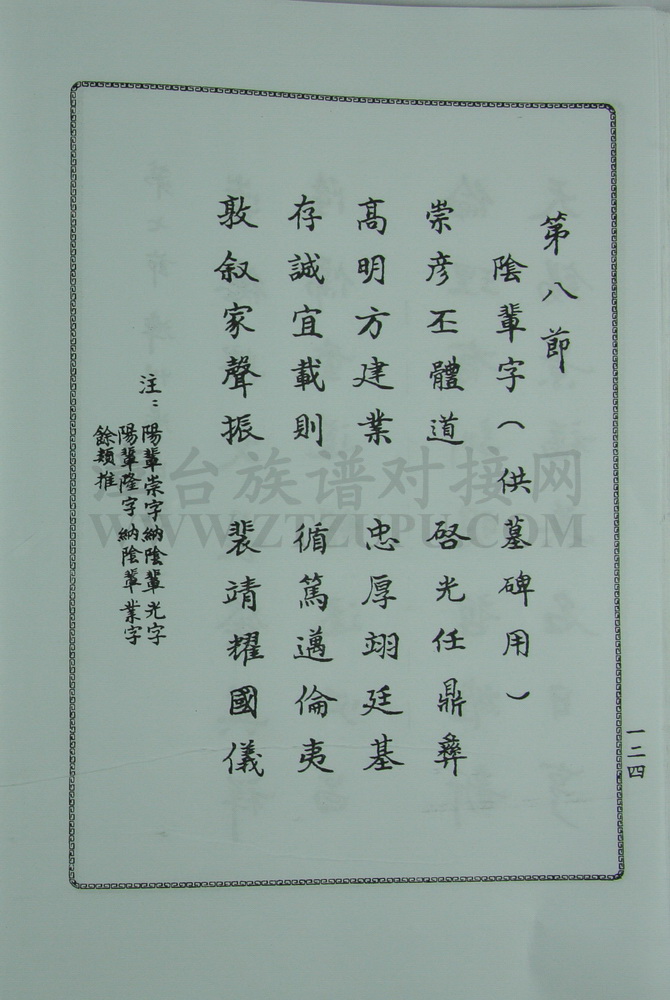 第八節
陰輩字(供墓碑用)
崇彦丕體道 啓光任鼎彝
高明方建業 忠厚翊廷基
存誠宜載則 循篤邁倫夷
敦叙家聲振 裴靖耀國儀
注:陽輩崇字納陰輩光字
陽輩隆字納陰輩業字
餘類推
一二四
台族谱对接网
WWW.ZTZUPU.COM